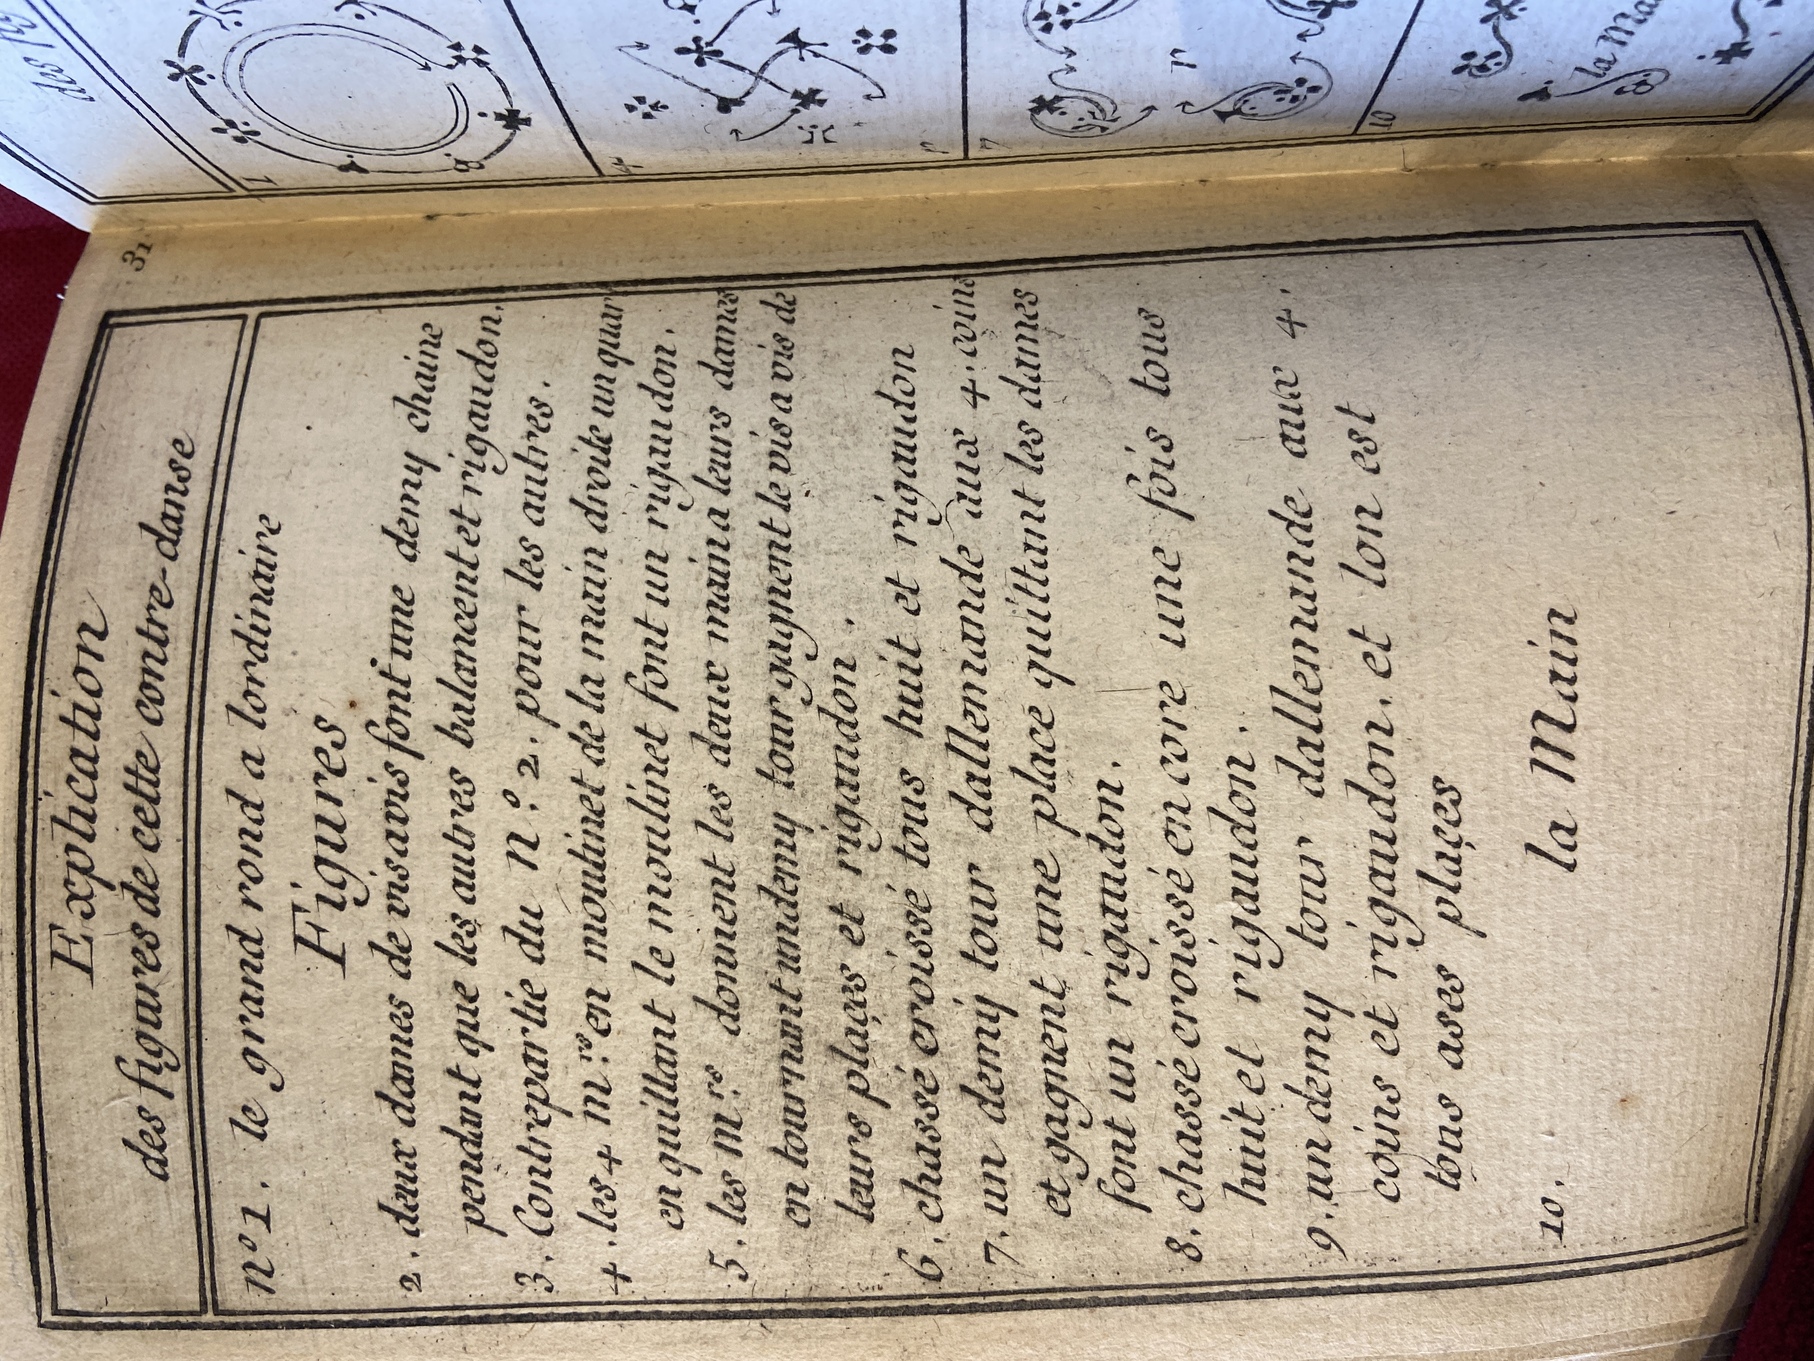 31
Explication
des figures de cette contre-danse
n.º 1. le grand rond a lordinaire
Figures
2. deux dames de visavis font une demy chaine
pendant que les autres balancent et rigaudon.
3. Contrepartie du n.º 2. pour les autres.
4. les 4 m.rs en moulinet de la main droite un quar
en quittant le moulinet font un rigaudon.
5. les m.rs donnent les deux main a leurs dames
en tournant undemy tour gagnent le vis a vis de
leurs plaçes et rigaudon.
6. chassé croissé tous huit et rigaudon
7. un demy tour dallemande aux 4. coins
et gagnent une place quittant les dames
font un rigaudon.
8. chassé croissé en core une fois tous
huit et rigaudon.
9. un demy tour dallemande aux 4.
coins et rigaudon. et lon est
tous ases plaçes
10. la Main
1
4
7
r
10
la Mai